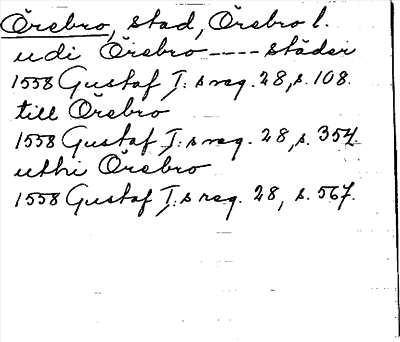 Örebro, stad, Örebro l.
udi Örebro ---- städer
1558 Gustaf I:s reg. 28, s. 108.
till Örebro
1558 Gustaf I:s reg. 28, s. 354.
uthi Örebro
1558 Gustaf I:s reg. 28, s. 567.